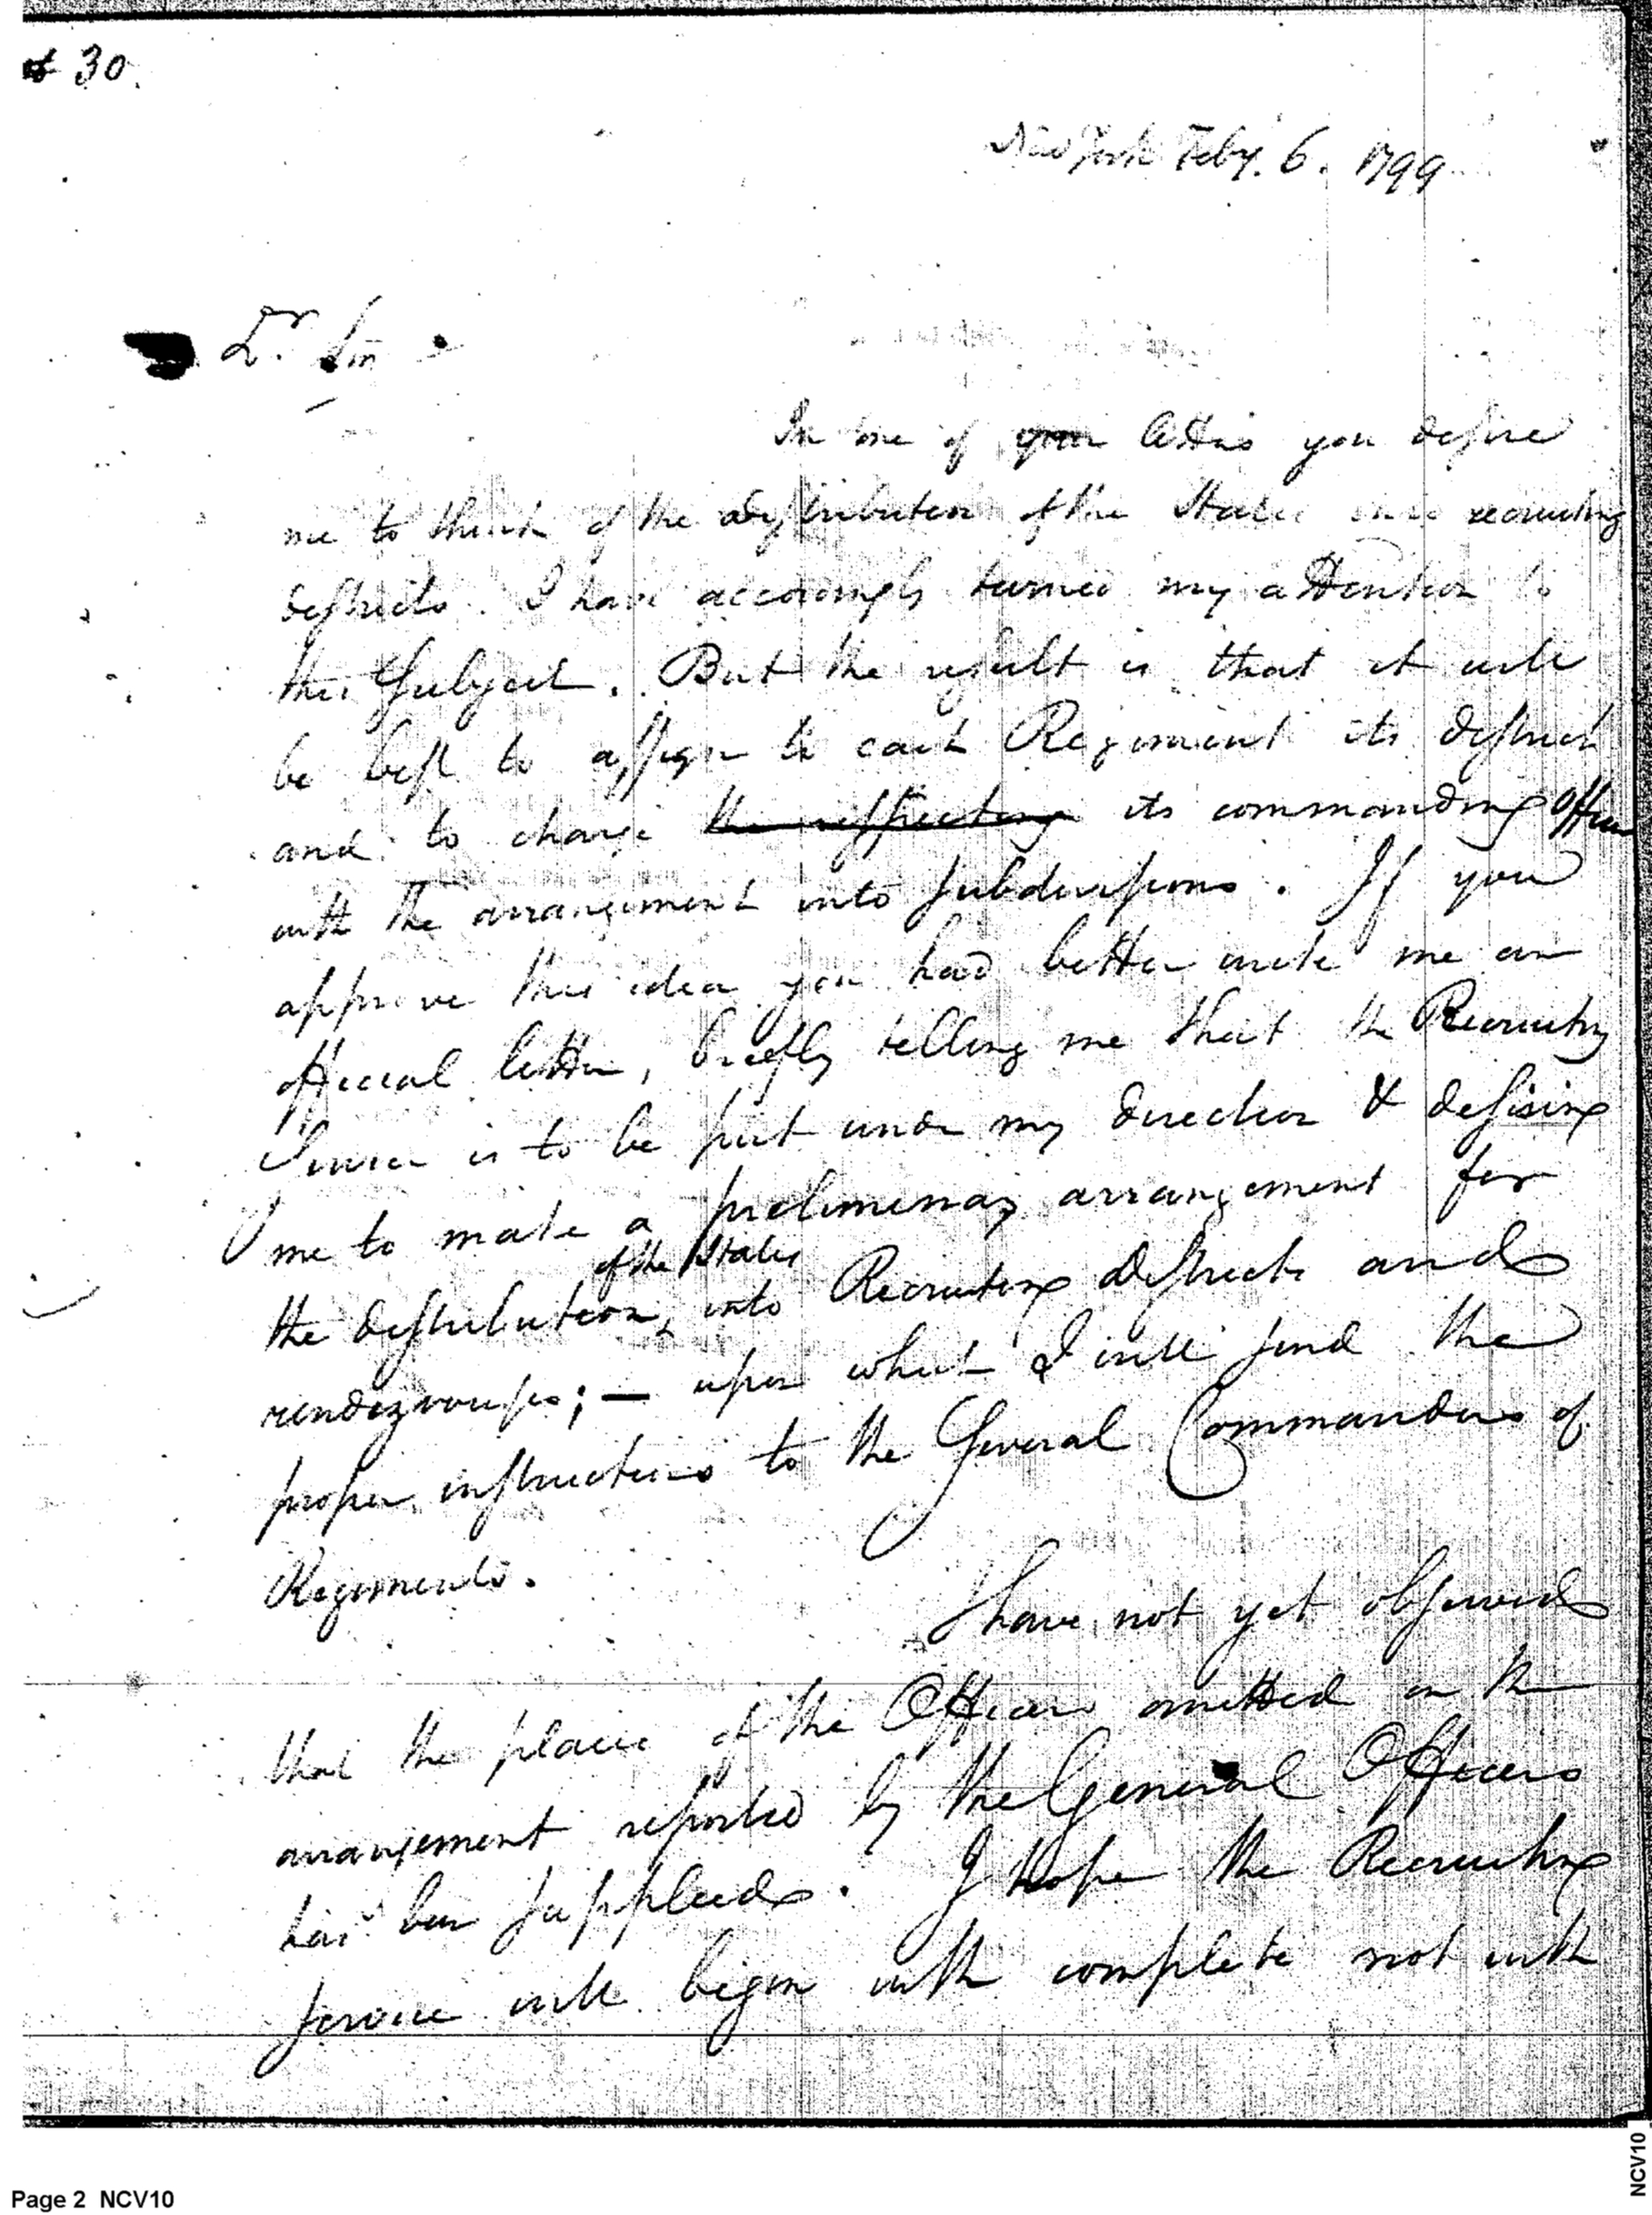 # 30.
New York Feby. 6. 1799
Dr. Sir
In one of your letters you desire
me to think of the distribution of the States into recruiting
districts. I have accordingly turned my attention to
this subject. But the result is that it will
be best to assign to each Regiment its district
and to charge the respecting its commanding officer
with the arrangement into subdivisions. If you
approve this idea you had better write me an
official letter, briefly telling me that the Recruiting
Service is to be put under my direction & desiring
me to make a preliminary arrangement for
of the States
the distribution into Recruiting districts and
rendezvouses; — upon which I will send the
proper instructions to the several Commanders of
Regiments.
I have not yet observed
that the places of the Officers omitted in the
arrangement reported by the General Officers
has been supplied. I hope the Recruiting
service will begin with complete not with
Page 2 NCV10
NCV10